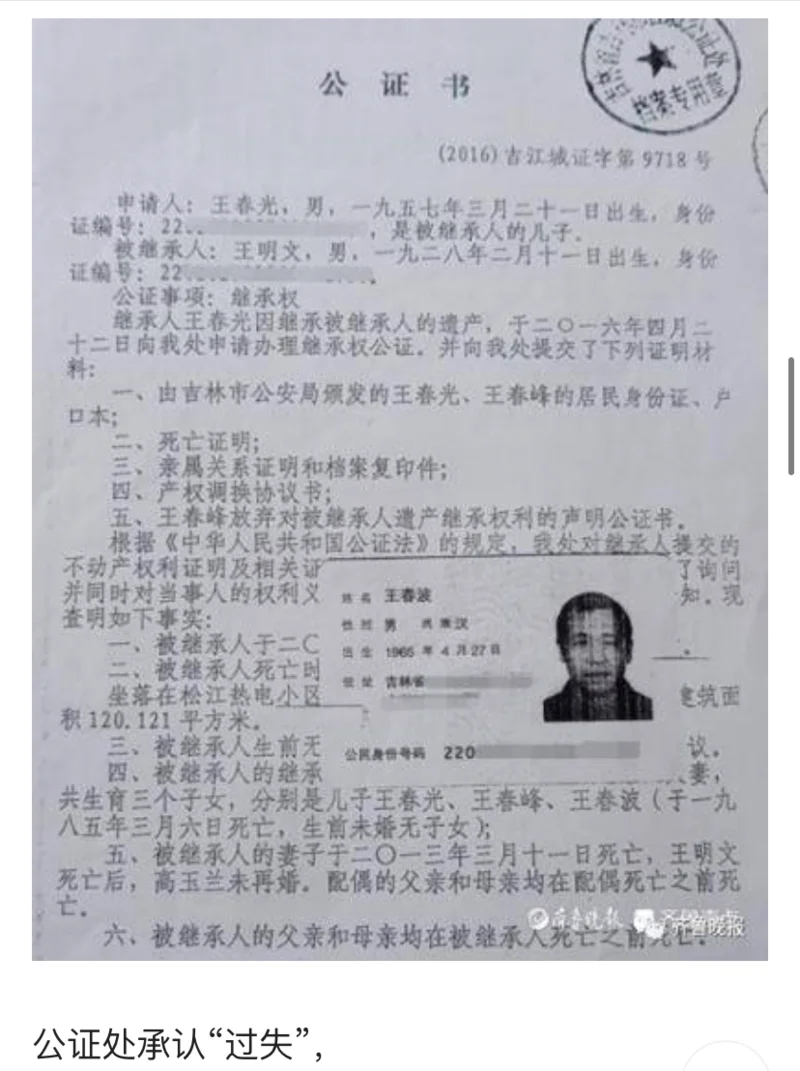 档案专用章
公 证 书
(2016)吉江城证字第 9718 号
申请人：王春光，男，一九五七年三月二十一日出生，身份
证编号：22 ，是被继承人的儿子。
被继承人：王明文，男，一九二八年二月十一日出生，身份
证编号：22
公证事项：继承权
继承人王春光因继承被继承人的遗产，于二〇一六年四月二
十二日向我处申请办理继承权公证。并向我处提交了下列证明材
料：
一、由吉林市公安局颁发的王春光、王春峰的居民身份证、户
口本；
二、死亡证明；
三、亲属关系证明和档案复印件；
四、产权调换协议书；
五、王春峰放弃对被继承人遗产继承权利的声明公证书。
根据《中华人民共和国公证法》的规定，我处对继承人提交的
不动产权利证明及相关证 了询问
并同时对当事人的权利义 知。现
查明如下事实：
一、被继承人于二〇
二、被继承人死亡时
坐落在松江热电小区 建筑面
积 120.121 平方米。
三、被继承人生前无 议。
四、被继承人的继承 妻，
姓名 王春波
性别 男 民族 汉
出生 1965 年 4 月 27 日
住址 吉林省
公民身份号码 220
共生育三个子女，分别是儿子王春光、王春峰、王春波（于一九
八五年三月六日死亡，生前未婚无子女）；
五、被继承人的妻子于二〇一三年三月十一日死亡，王明文
死亡后，高玉兰未再婚。配偶的父亲和母亲均在配偶死亡之前死
亡。
六、被继承人的父亲和母亲均在被继承人死亡之前死亡。
齐鲁晚报
齐鲁晚报
公证处承认“过失”，